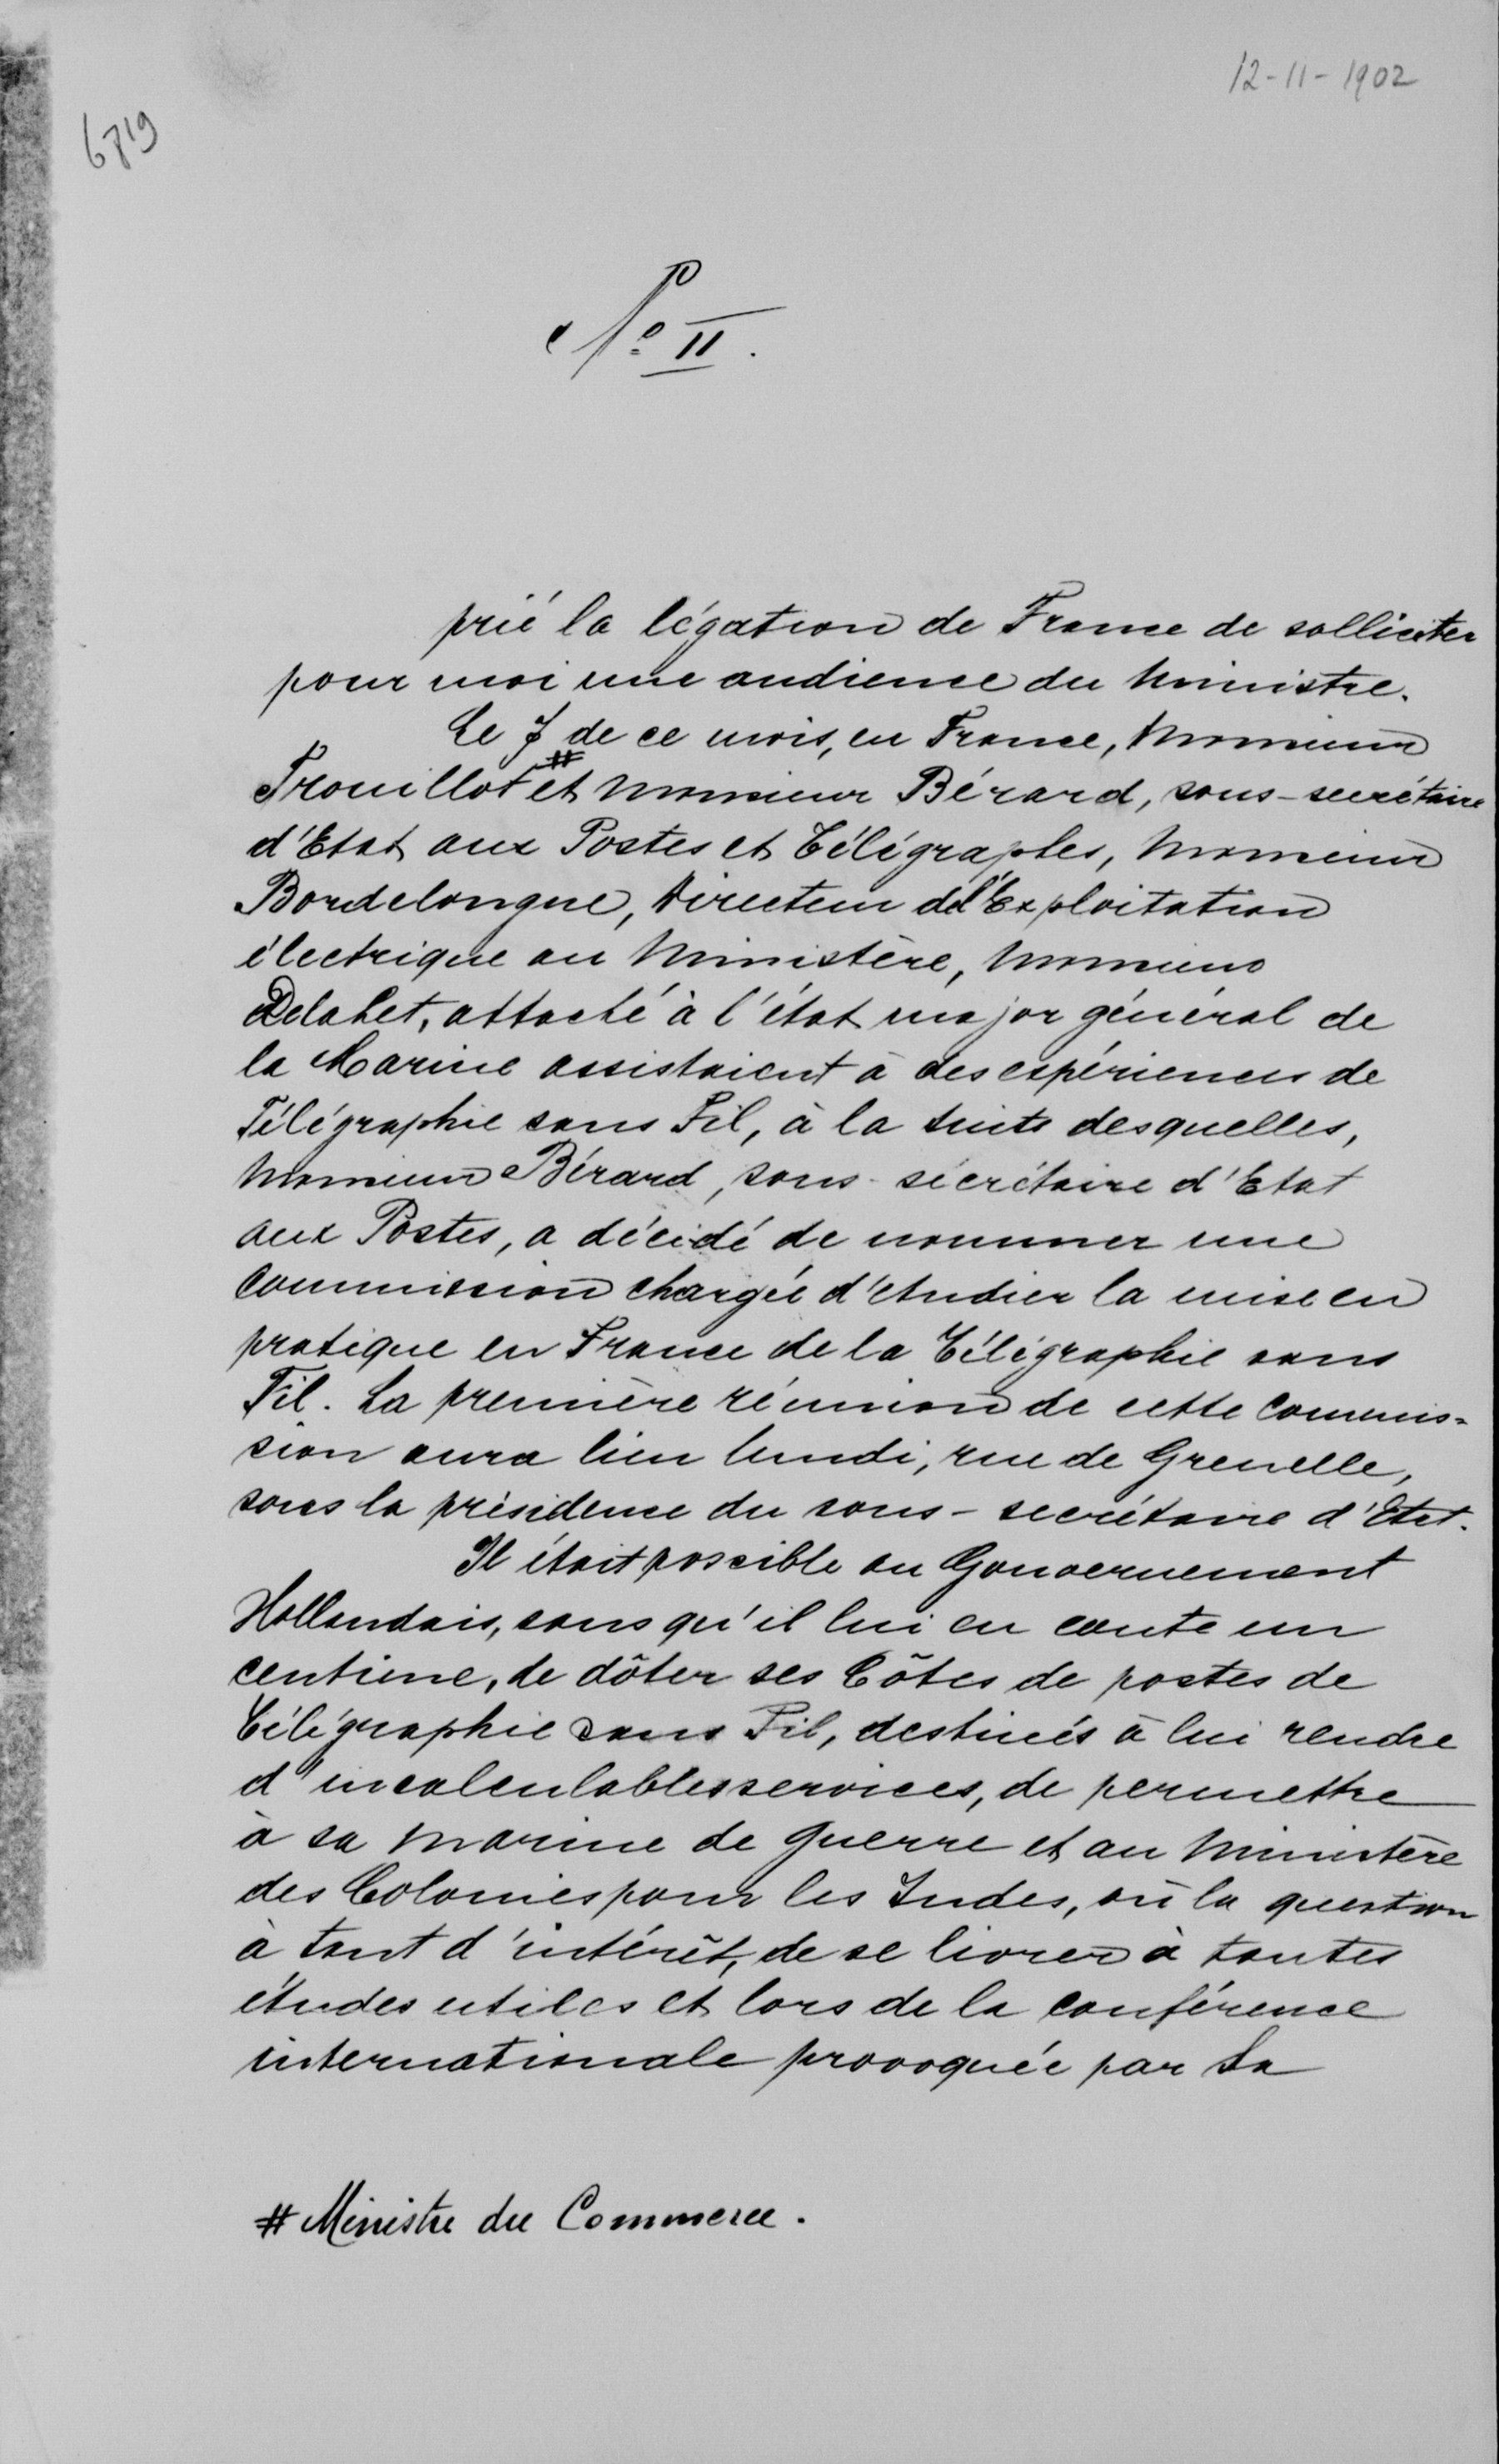 12-11-1902
6719
No II.
prié la légation de France de solliciter
pour moi une audience du Ministre.
Le 7 de ce mois, en France, Monsieur
Trouillot # et Monsieur Bérard, sous-secrétaire
d'Etat aux Postes et Télégraphes, Monsieur
Bordelongue, Directeur del'Exploitation
électrique au Ministère, Monsieur
attaché à l'état major général de
la Marine assistaient à des expériences de
Télégraphie sans Fil, à la suite desquelles,
Monsieur Bérard, sous-sécrétaire d'Etat
aux Postes, a décidé de nommer une
Commission chargée d'etudier la mise en
pratique en France de la Télégraphie sans
Fil. La première réunion de cette Commis=
sion aura lieu lundi, rue de Grenelle,
sous la présidence du sous-secrétaire d'Etat.
Il était possible au Gouvernement
Hollandais, sans qu'il lui en coute un
centime, de dôter ses Côtes de postes de
Télégraphie sans Fil, destinés à lui rendre
d'incalculables services, de permettre
à sa marine de guerre et au Ministère
des Colonies pour les Indes, où la question
à tant d'intérêt, de se livrer à toutes
études utiles et lors de la conférence
internationale provoquée par Sa
# Ministre du Commerce.